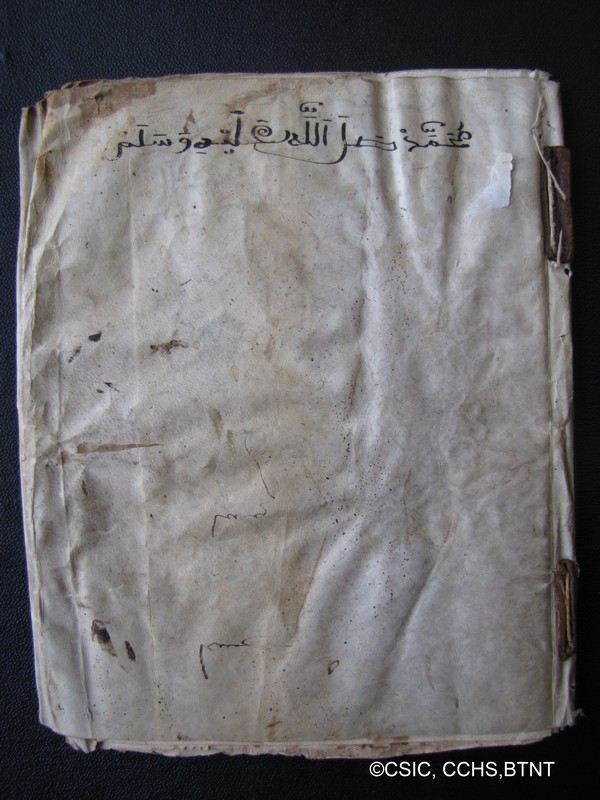 مُحَمَّدْ صَلَ اَللَّه عَلَيْهِ وَسَلَمْ
©CSIC, CCHS,BTNT